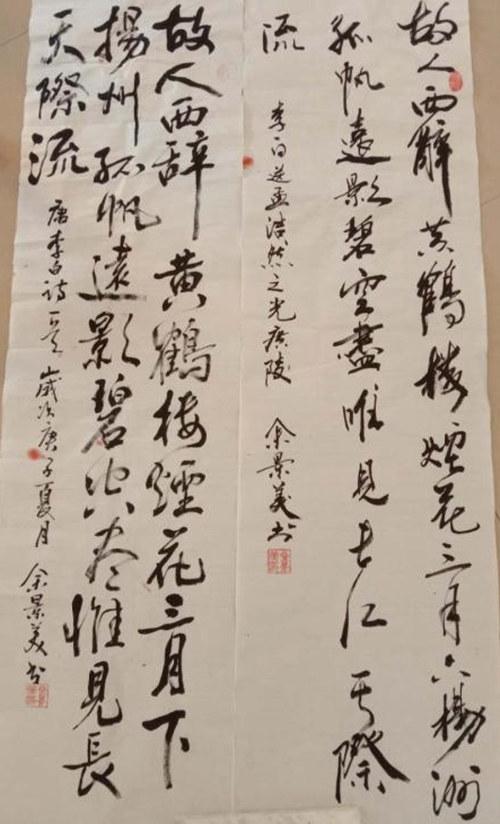 故人西辭黄鶴楼煙花三月下揚洲
孤帆遠影碧空盡唯見长江天際
流
李白送孟浩然之光廣陵 余景美书
故人西辞黄鶴楼煙花三月下
揚州孤帆遠影碧空尽惟見長
天際流
唐李白诗一首歲次庚子夏月 余景美书